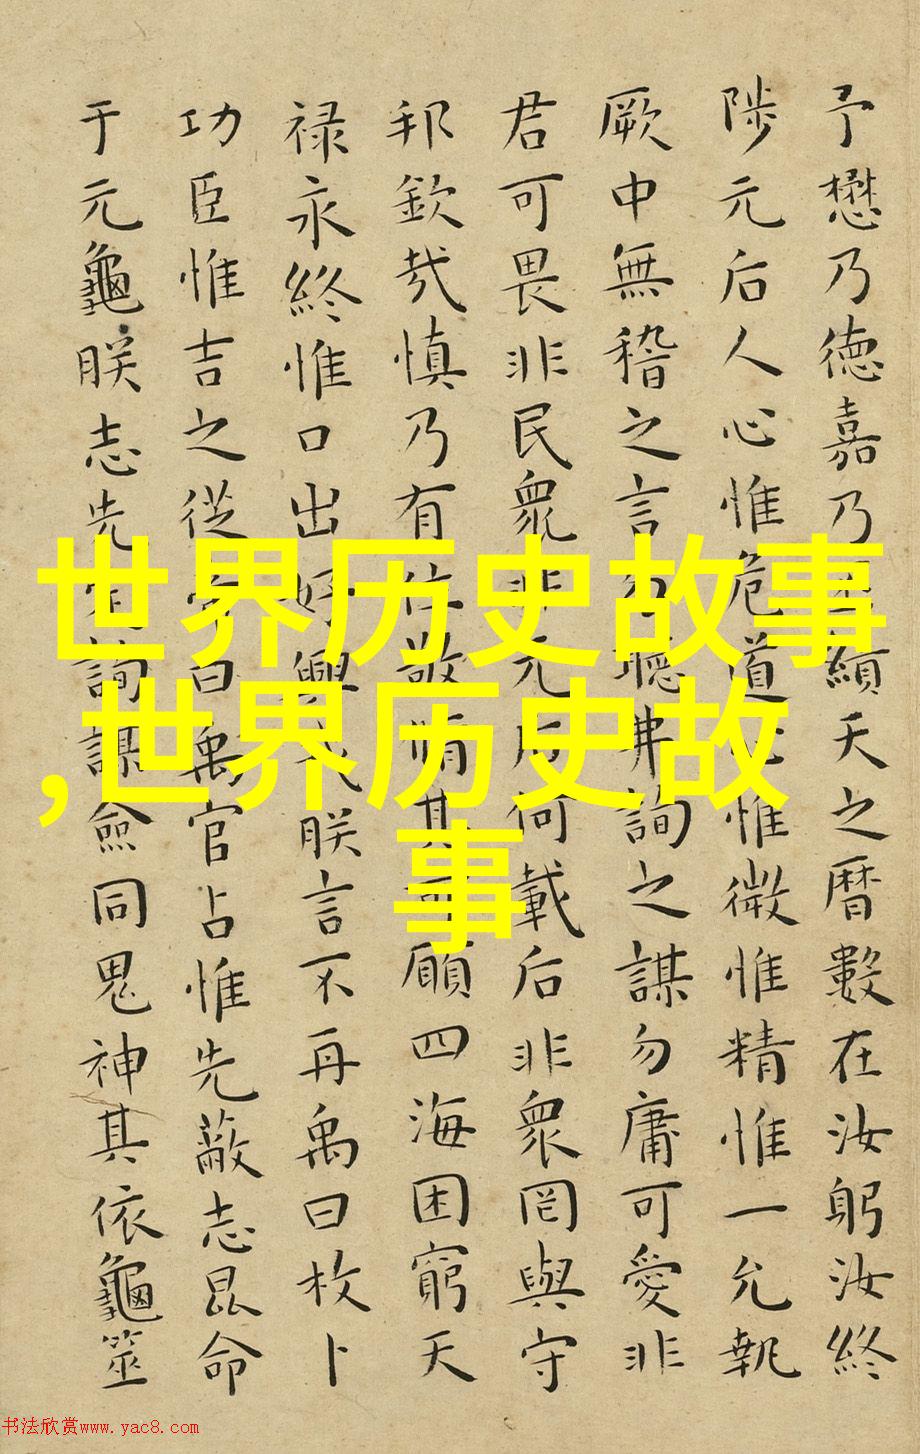 予懋乃德嘉乃丕績天之曆數在汝躬汝終
陟元后人心惟危道心惟微惟精惟一允執
厥中無稽之言勿聽弗詢之謀勿庸可愛非
君可畏非民眾非元后何戴后非眾罔與守
邦欽哉慎乃有位敬脩其可願四海困窮天
禄永終惟口出好興戎朕言不再禹曰枚卜
功臣惟吉之從帝曰禹官占惟先蔽志昆命
于元龜朕志先定詢謀僉同鬼神其依龜筮
世界历史故事
,世界历史故
事
书法欣赏www.yac8.com